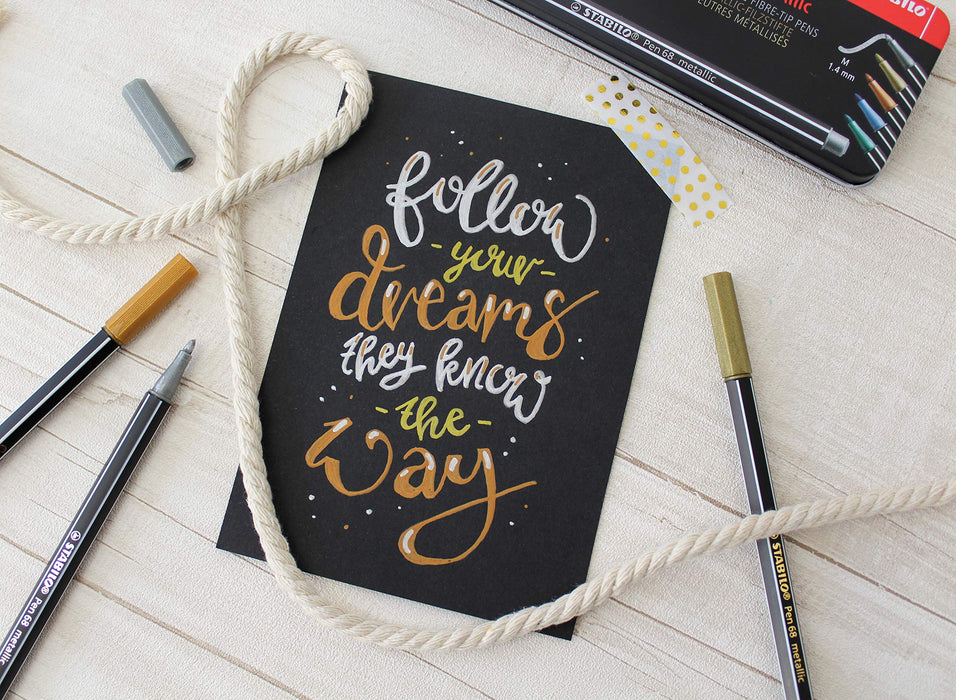 follow
- your -
dreams
they know
- the -
way
STABILO® Pen 68 metallic
FIBRE-TIP PENS
LUTRES MÉTALLISÉS
M
1.4 mm
STABILO
STABILO® Pen 68 metallic
STABILO® Pen 68 metallic